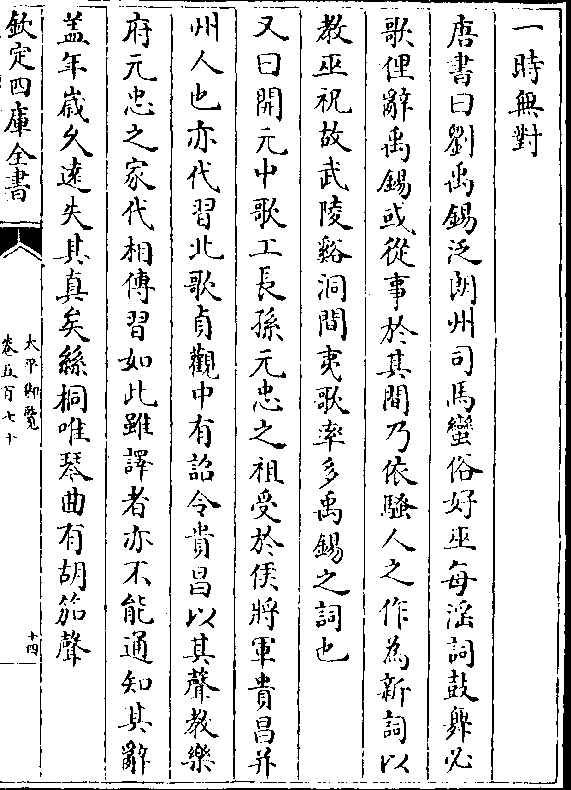 一時無對
唐書曰劉禹錫泛朗州司馬蠻俗好巫每滛詞鼓舞必
歌俚辭禹錫或從事於其間乃依騷人之作為新詞以
教巫祝故武陵谿洞間夷歌率多禹錫之詞也
又曰開元中歌工長孫元忠之祖受於侯將軍貴昌并
州人也亦代習北歌貞觀中有詔令貴昌以其聲教樂
府元忠之家代相傳習如此雖譯者亦不能通知其辭
盖年嵗久逺失其真矣絲桐唯琴曲有胡笳聲
欽定四庫全書
太平御覽
卷五百七十
十四